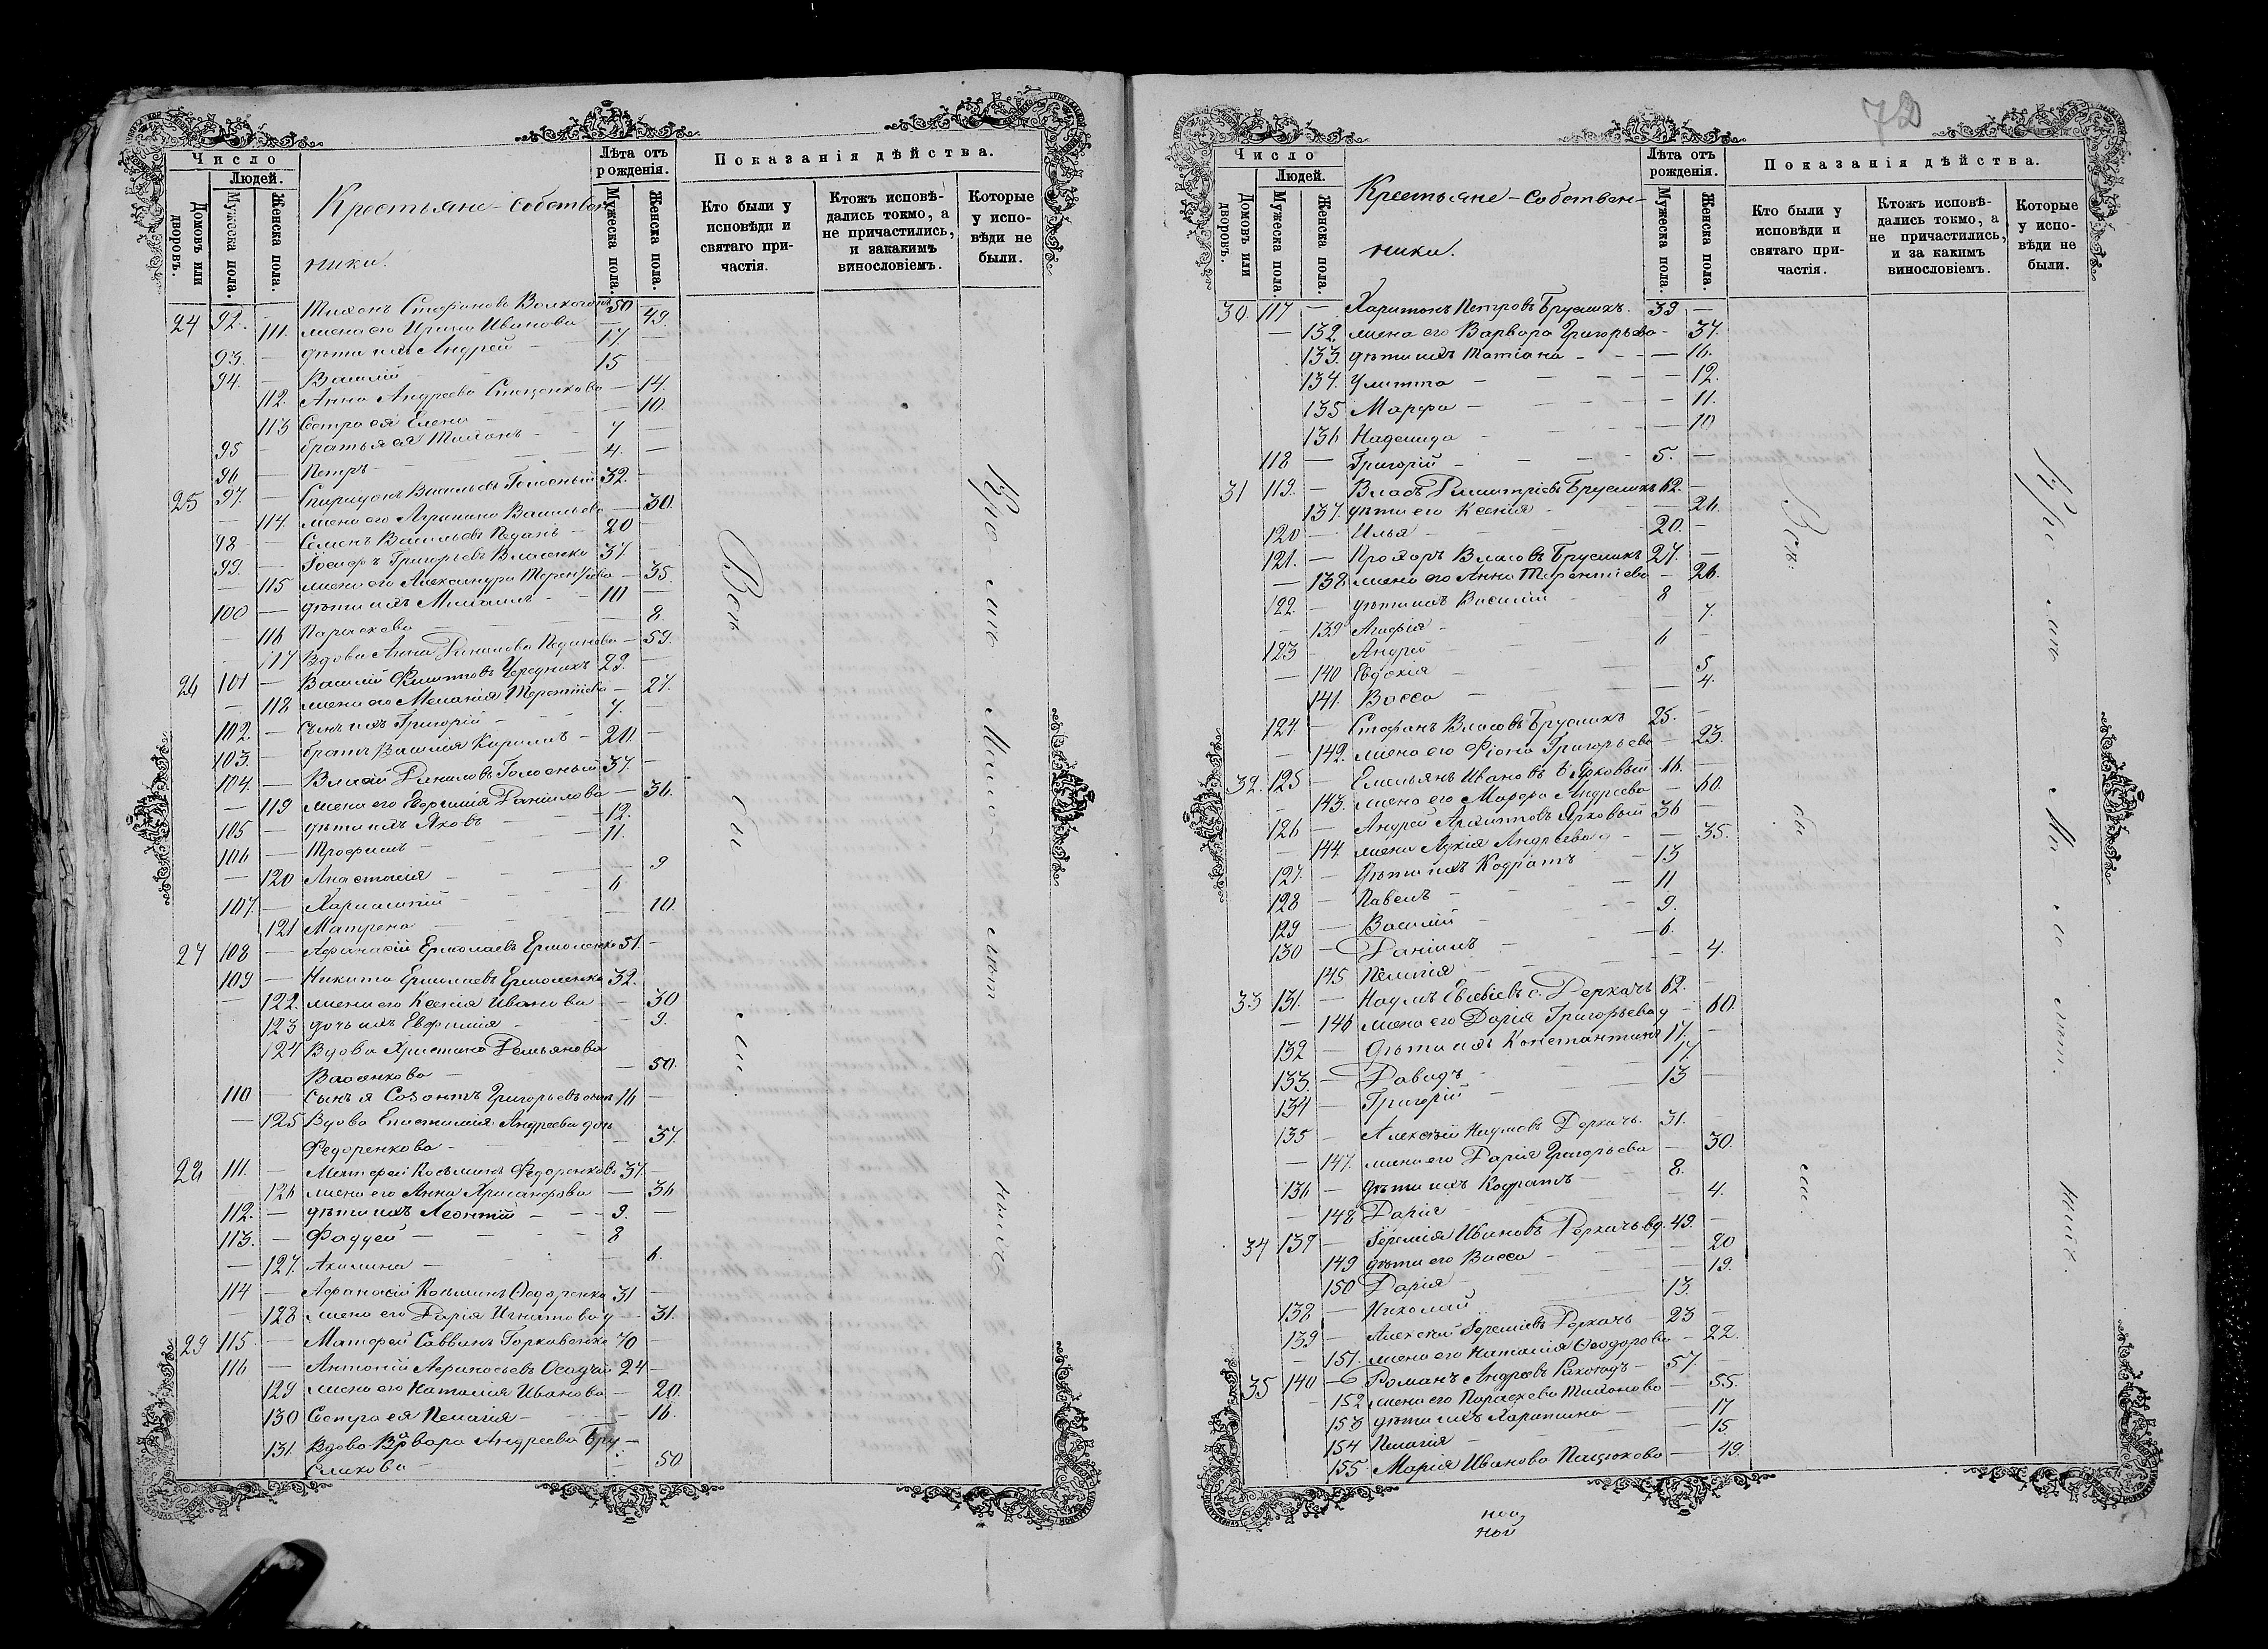 Число
Людей.
Домовъ или дворовъ.
Мужеска пола.
Женска пола.
Крестьяне-собствен
ники.
Лѣта отъ рожденія.
Мужеска пола.
Женска пола.
Показанія дѣйства.
Кто были у исповѣди и святаго причастія.
Ктожъ исповѣдались токмо, а не причастились, и закакимъ винословіемъ.
Которые у исповѣди не были.
24 92. — Тихонъ Стефановъ 50 —
111. жена его Ирина Иванова — 49.
93. — дѣти ихъ Андрей — 17. —
94. — Василій 15
112. Анна Андреева Стеценкова — 14.
113 Сестра ея Елена — 10.
95 — братья ея Тихонъ — 7 —
96 — Петръ — 4. —
25 97. — Спиридонъ Васильевъ Голосный 32.
— 114. жена его Агрипина Васильева — 30.
98 — Семенъ Васильевъ Педанъ — 20
99. — Іосифъ Григорьевъ Власенко 37.
— 115 жена его Александра Терентіева — 35.
100 — дѣти ихъ Михаилъ — 10 —
— 116 Параскева — 8.
— 117 Вдова Анна Данилова Педанова — 59.
26 101 — Василій Филиповъ Чередникъ 29. —
— 118 жена его Меланія Терентіева — 27.
102. — Сынъ ихъ Григорій — 7. —
103. — братъ Василія Кирилъ — 20. —
104. — Власій Даниловъ Голосный 37. —
— 119 жена его Евфимія Даніилова — 36.
105 — дѣти ихъ Яковъ — 12.
106 — Трофимъ — 11.
— 120 Анастасія — 9
107. — Харлампій — 6
121 Матрена — 10.
27 108 — Афанасій Ермолаевъ Ермоленко 51. —
109 — Никита Ермолаевъ Ермоленко 32.
— 122. жена его Ксенія Иванова — 30
123 дочь ихъ Евфимія — 9.
124 Вдова Христина Демьянова
Власенкова — 50.
110 — Сынъ я Созонтъ Григорьевъ 16 —
— 125 Вдова Епистимія Андреева дочь
Федоренкова — 37.
28 111. — Матфей Косьминъ Федоренковъ 37. —
— 126 жена его Анна Хрисанфова — 36
112. — дѣти ихъ Леонтій — 9. —
113. — Фаддей — 8
— 127. Акилина — 6.
114 — Афанасій Косьминъ Федоренко 31 —
— 128 жена его Дарія Игнатова — 31.
29 115. — Матфей Саввинъ Горкавенко 70 —
116 — Антоній Афанасьевъ Осадчій 24 —
129 жена его Наталія Иванова — 20.
130 Сестра ея Пелагія — 16.
131 Вдова Варвара Андреева Бру—
сликова — 50
Всѣ были.
72
Число
Людей.
Домовъ или дворовъ.
Мужеска пола.
Женска пола.
Крестьяне-собствен-
ники.
Лѣта отъ рожденія.
Мужеска пола.
Женска пола.
Показанія дѣйства.
Кто были у исповѣди и святаго причастія.
Ктожъ исповѣдались токмо, а не причастились, и за какимъ винословіемъ.
Которые у исповѣди не были.
30. 117 — Харитонъ Петровъ Бруслихъ. 39 —
— 132 жена его Варвара Григорьева — 37.
133. дѣти ихъ Татіана — 16.
134. Улитта — 12.
135 Марфа — 11.
136 Надежда — 10
118 — Григорій — 5. —
31 119. — Власъ Димитріевъ Бруслихъ 62. —
137. дѣти его Ксенія — 26.
120 — Илья — 20. —
121. — Прохоръ Власовъ Бруслихъ 27. —
— 138 жена его Анна Терентіева — 26.
122. — дѣти ихъ Василій — 8
— 139 Агафія — 7.
123 — Андрей 6 —
— 140 Евдокія — 5
141. Васса — 4.
124. — Стефанъ Власовъ Бруслихъ 25. —
— 142. жена его Фіона Григорьева — 23.
32. 125 — Емельянъ Ивановъ Ярковый 66. —
— 143. жена его Марфа Андреева — 60.
126 — Андрей Архиповъ Ярковый 36 —
— 144. жена Лукія Андреева — 35.
127. — дѣти ихъ Кодратъ — 13
128 — Павелъ — 11
129 — Василій 9.
130 — Даніилъ — 6.
145 Пелагія — 4.
33 131. — Наумъ Евсевіевъ Деркачъ 62. —
— 146 жена его Дарія Григорьева — 60.
132 — дѣти ихъ Константинъ 17. —
133. — Давидъ 17.
134 — Григорій 13 —
135 — Алексѣй Наумовъ Деркачъ. 31.
— 147. жена его Дарія Григорьева — 30.
136 — дѣти ихъ Кодратъ — 8.
— 148 Дарія — 4.
34 137 — Іеремія Ивановъ Деркачъ вд. 49. —
149 дѣти его Васса — 20
150 Дарія — 19.
138 — Николай 13.
139 — Алексѣй Іереміевъ Деркачъ 23 —
— 151. жена его Наталія Феодорова — 22.
35 140 — Романъ Андреевъ 57. —
— 152 жена его Параскева Тихонова — 55.
153 дѣти ихъ Харитина — 17
154 Пелагія — 15
155 Марія Иванова Пацюкова — 49.
Всѣ были.
ной